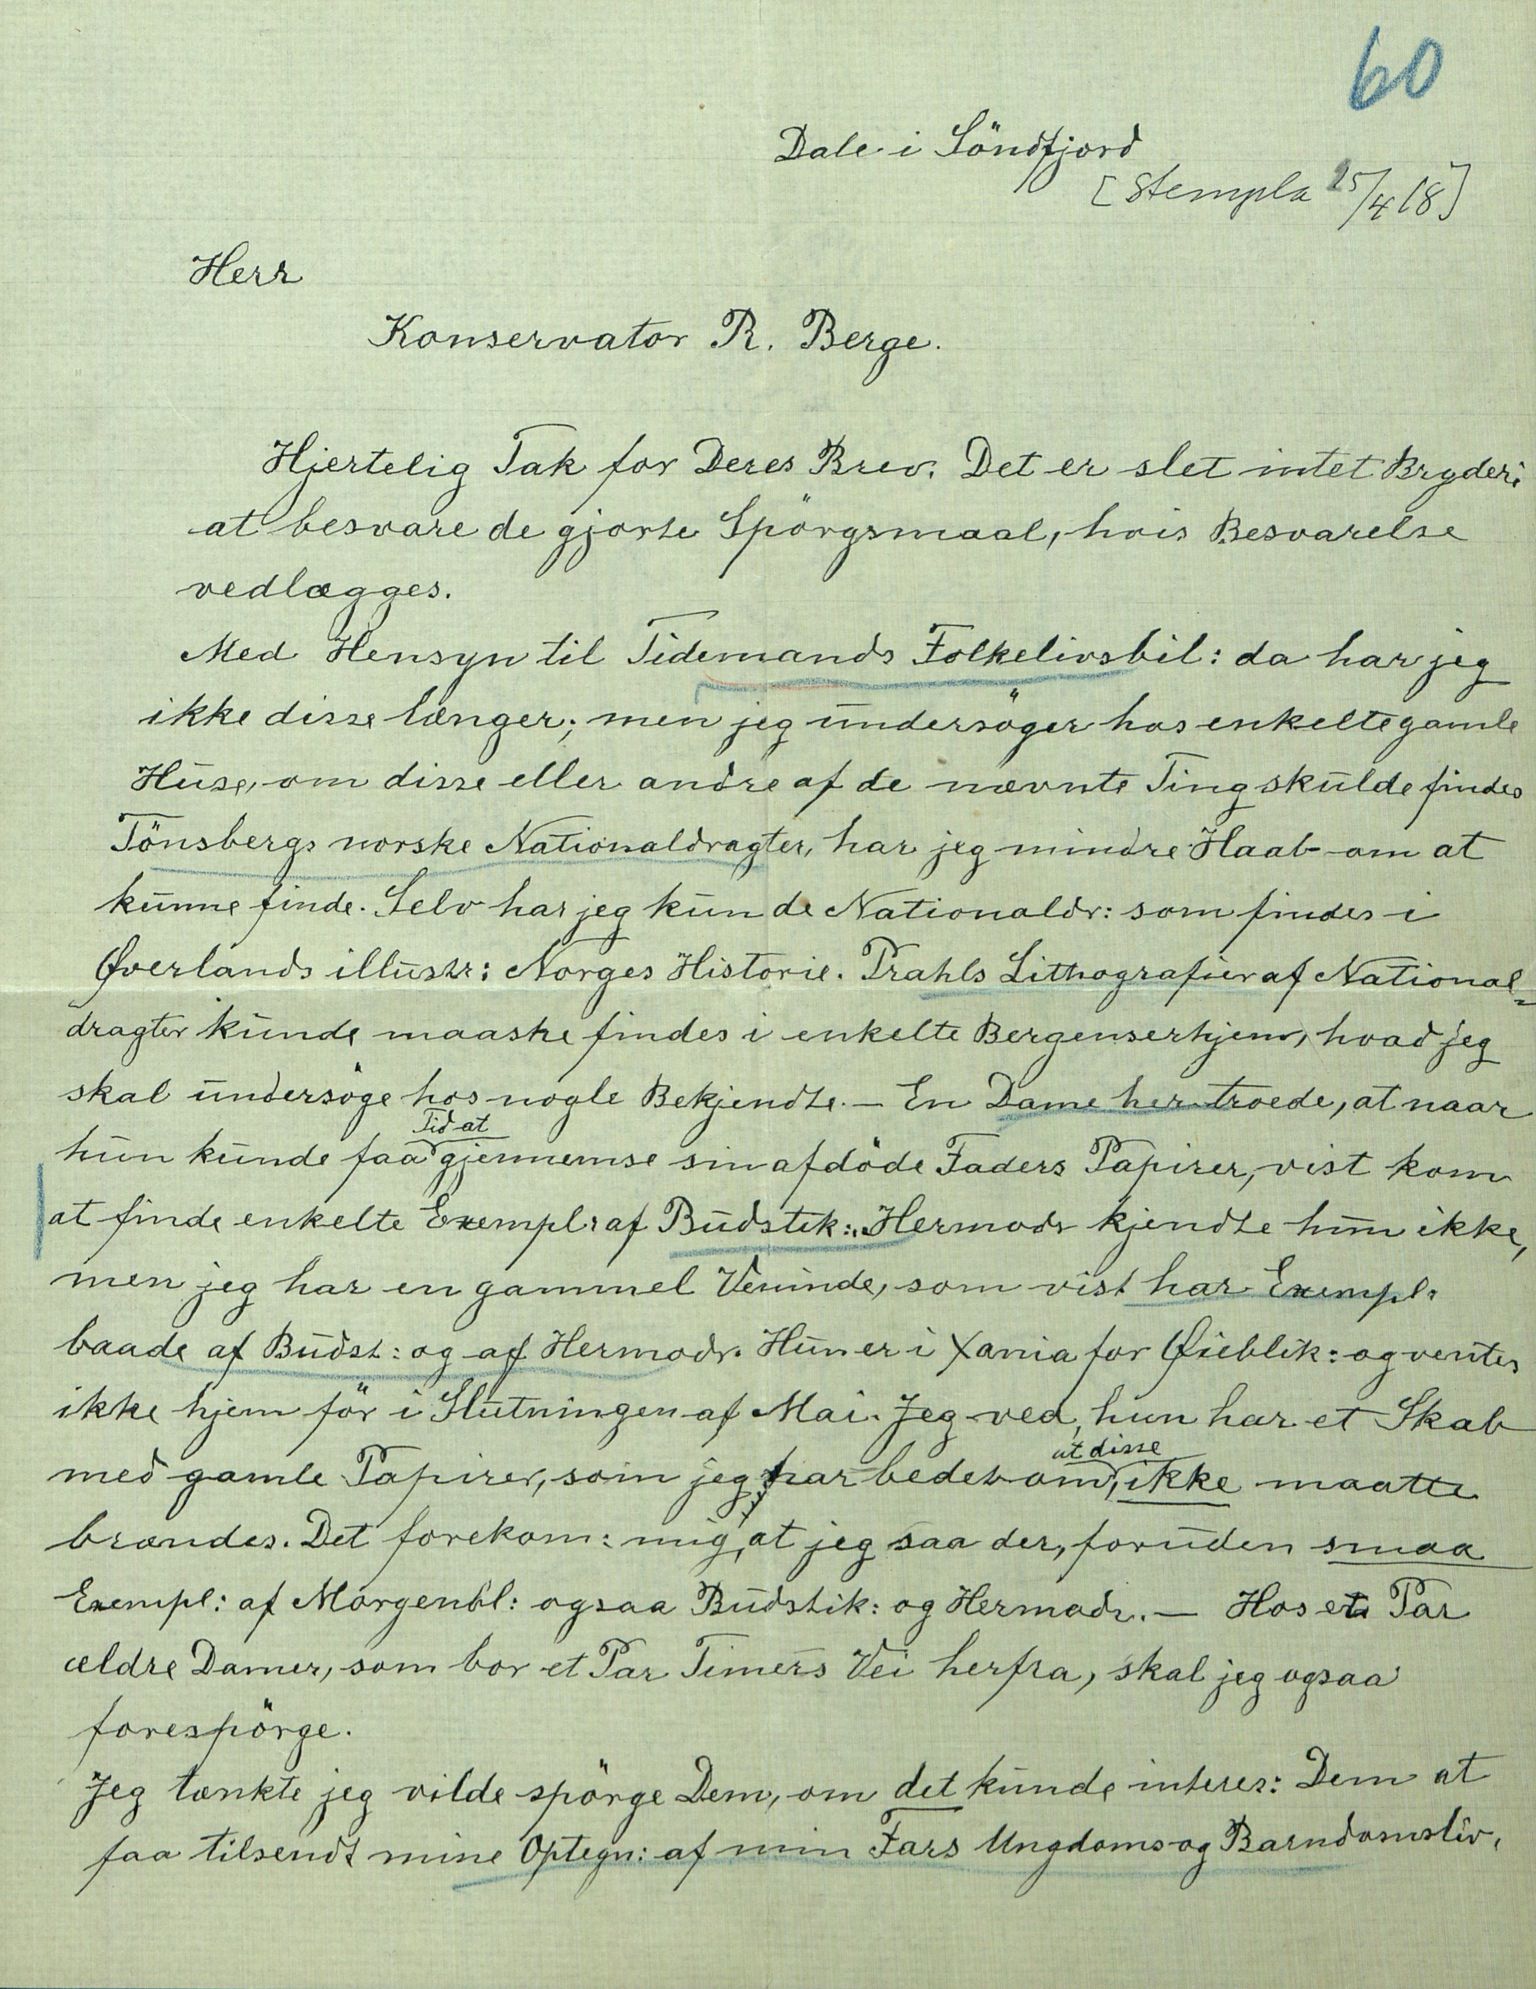 60
Dale i Söndfjord
[Stempla 25/4 18]
Herr
Konservator R. Berge.
Hjertelig Tak for Deres Brev. Det er slet intet Bryderi
at besvare de gjorte Spörgsmaal, hvis Besvarelse
vedlægges.
Med Hensyn til Tidemands Folkelivsbil: da har jeg
ikke disse længer; men jeg undersöger hos enkelte gamle
Huse, om disse eller andre af de nævnte Ting skulde findes
Tönsbergs norske Nationaldragter, har jeg mindre Haab om at
kunne finde. Selv har jeg kun de Nationaldr: som findes i
Øverlands illustr: Norges Historie. Prahls Lithografier af National-
dragter kunde maaske findes i enkelte Bergenserhjem, hvad jeg
skal undersöge hos nogle Bekjendte. — En Dame her troede, at naar
hun kunde faa Tid at gjennemse sin afdöde Faders Papirer, vist kom
at finde enkelte Exempl: af Budstik: Hermodr kjendte hun ikke,
men jeg har en gammel Veninde, som vist har Exempl:
baade af Budst: og af Hermodr. Hun er i Xania for Øieblik: og ventes
ikke hjem för i Slutningen af Mai. Jeg ved, hun har et Skab
med gamle Papirer, som jeg har bedet om, at disse ikke maatte
brændes. Det forekom: mig, at jeg saa der, foruden smaa
Exempl: af Morgenbl: ogsaa Budstik: og Hermodr. — Hos et Par
ældre Damer, som bor et Par Timers Vei herfra, skal jeg ogsaa
forespörge.
Jeg tænkte jeg vilde spörge Dem, om det kunde interes: Dem at
faa tilsendt mine Optegn: af min Fars Ungdoms og Barndomsliv.